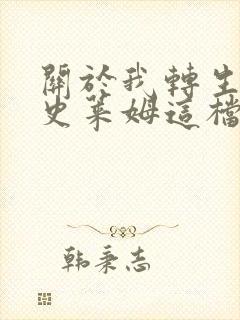 關於我轉生
史萊姆這檔
韩秉志